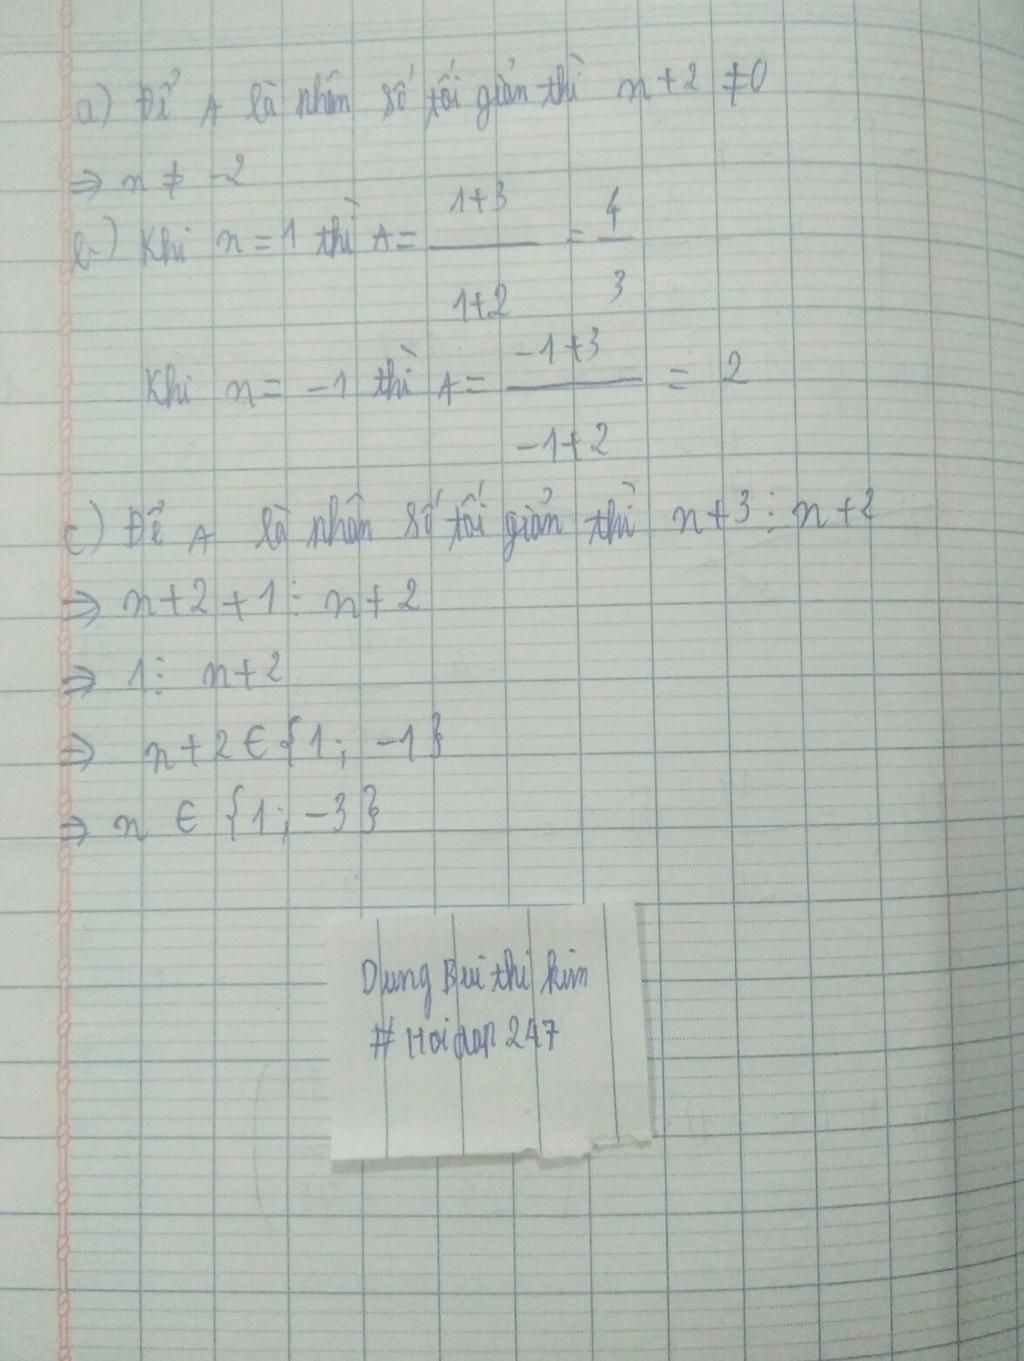 a) Để A là nhân số tối giản thì n+2 ≠0
⇒ n ≠ -2
b) Khi n=1 thì A= 1+3/1+2 = 4/3
Khi n= -1 thì A= -1+3/-1+2 = 2
c) Để A là nhân số tối giản thì n+3 ⋮ n+2
⇒ n+2+1 ⋮ n+2
⇒ 1 ⋮ n+2
⇒ n+2 ∈ {1; -1}
⇒ n ∈ {1; -3}
Dung Bui thi kim
# Hoidap 247